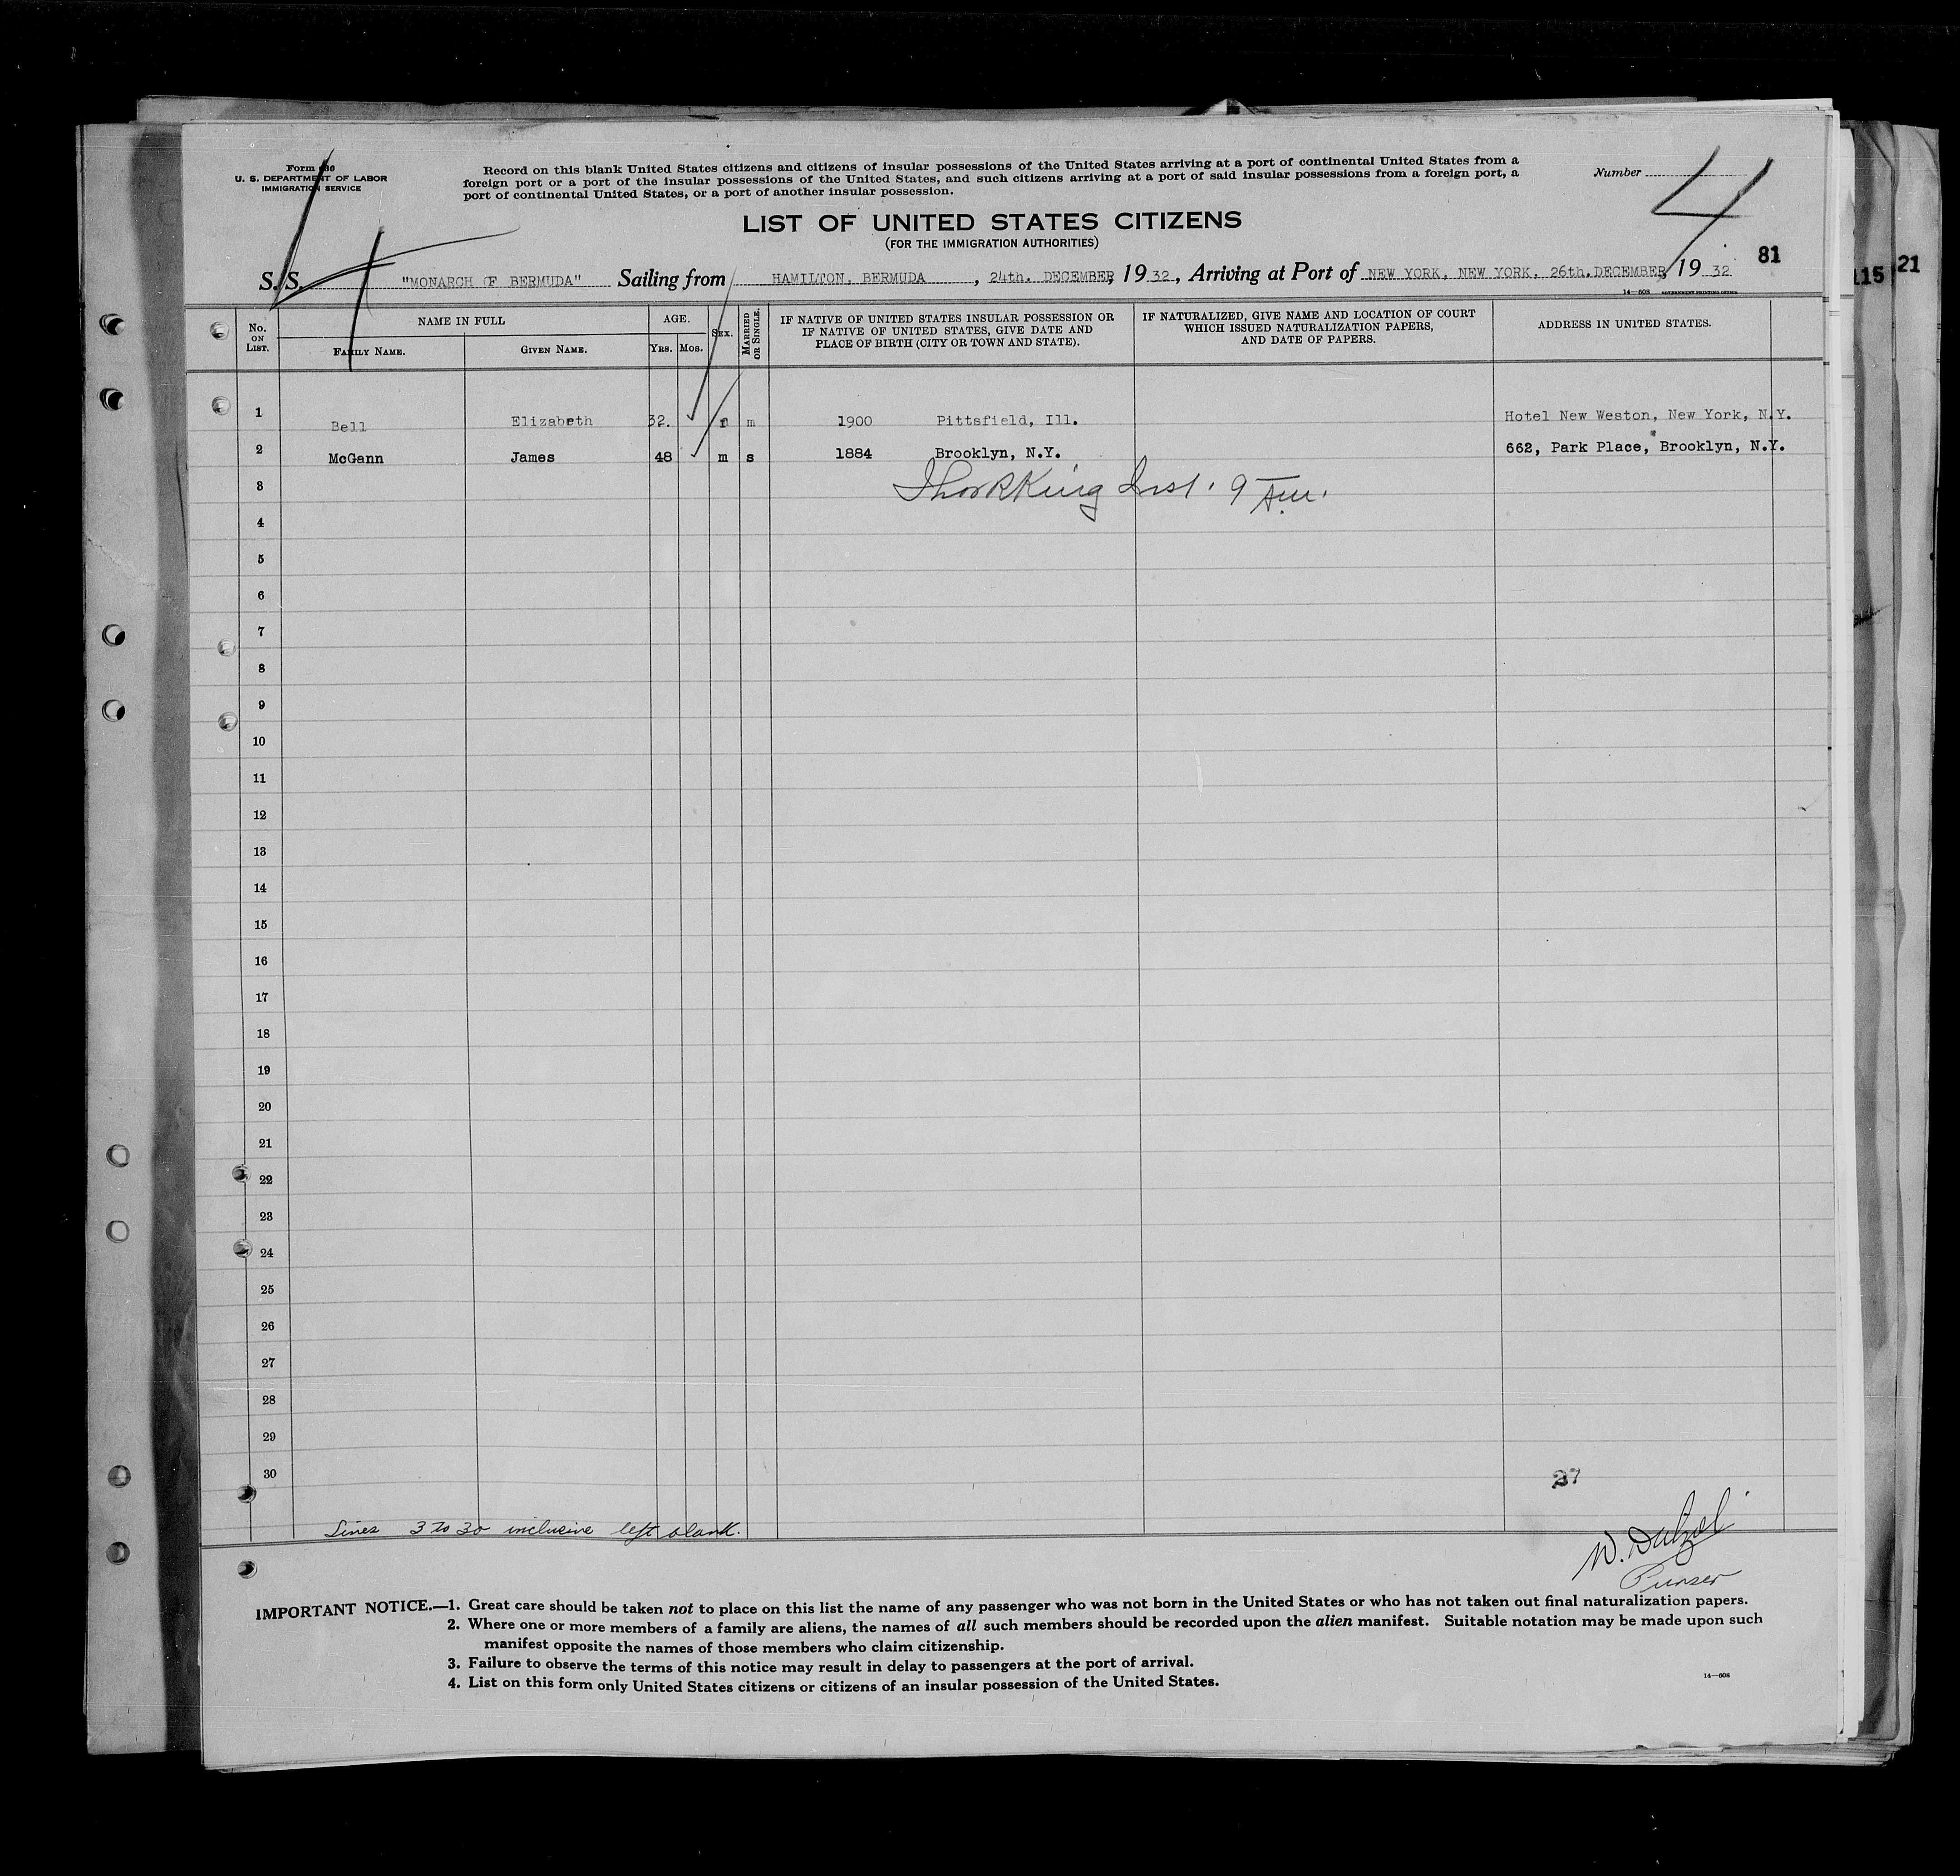 Form 630
U. S. DEPARTMENT OF LABOR
IMMIGRATION SERVICE
Record on this blank United States citizens and citizens of insular possessions of the United States arriving at a port of continental United States from a
foreign port or a port of the insular possessions of the United States, and such citizens arriving at a port of said insular possessions from a foreign port, a
port of continental United States, or a port of another insular possession.
Number
4
LIST OF UNITED STATES CITIZENS
(FOR THE IMMIGRATION AUTHORITIES)
81
115
21
S. S. "MONARCH OF BERMUDA" Sailing from HAMILTON, BERMUDA, 24th. DECEMBER, 1932, Arriving at Port of NEW YORK, NEW YORK, 26th. DECEMBER, 1932
14—608 GOVERNMENT PRINTING OFFICE
No. ON LIST. NAME IN FULL AGE. SEX. MARRIED OR SINGLE. IF NATIVE OF UNITED STATES INSULAR POSSESSION OR IF NATIVE OF UNITED STATES, GIVE DATE AND PLACE OF BIRTH (CITY OR TOWN AND STATE). IF NATURALIZED, GIVE NAME AND LOCATION OF COURT WHICH ISSUED NATURALIZATION PAPERS, AND DATE OF PAPERS. ADDRESS IN UNITED STATES.
FAMILY NAME. GIVEN NAME. YRS. MOS.
1 Bell Elizabeth 32. f m 1900 Pittsfield, Ill. Hotel New Weston, New York, N.Y.
2 McGann James 48 m s 1884 Brooklyn, N.Y. 662, Park Place, Brooklyn, N.Y.
3
King Insp. 9 Am.
4
5
6
7
8
9
10
11
12
13
14
15
16
17
18
19
20
21
22
23
24
25
26
27
28
29
30
27
Lines 3 to 30 inclusive left blank.
W.
Purser
IMPORTANT NOTICE.—1. Great care should be taken not to place on this list the name of any passenger who was not born in the United States or who has not taken out final naturalization papers.
2. Where one or more members of a family are aliens, the names of all such members should be recorded upon the alien manifest. Suitable notation may be made upon such
manifest opposite the names of those members who claim citizenship.
3. Failure to observe the terms of this notice may result in delay to passengers at the port of arrival.
4. List on this form only United States citizens or citizens of an insular possession of the United States.
14—608